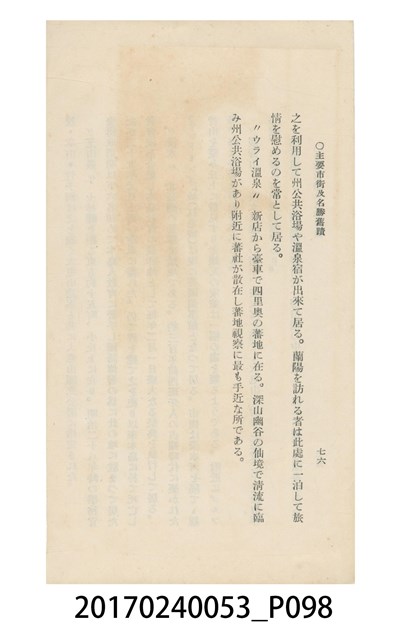 〇主要市街及名勝舊蹟
七六
之を利用して州公共浴場や溫泉宿が出來て居る。蘭陽を訪れる者は此處に一泊して旅
情を慰めるのを常として居る。
〃ウライ溫泉〃 新店から臺車で四里奧の蕃地に在る。深山幽谷の仙境で淸流に臨
み州公共浴場があり附近に蕃社が散在し蕃地視察に最も手近な所である。
20170240053_P098